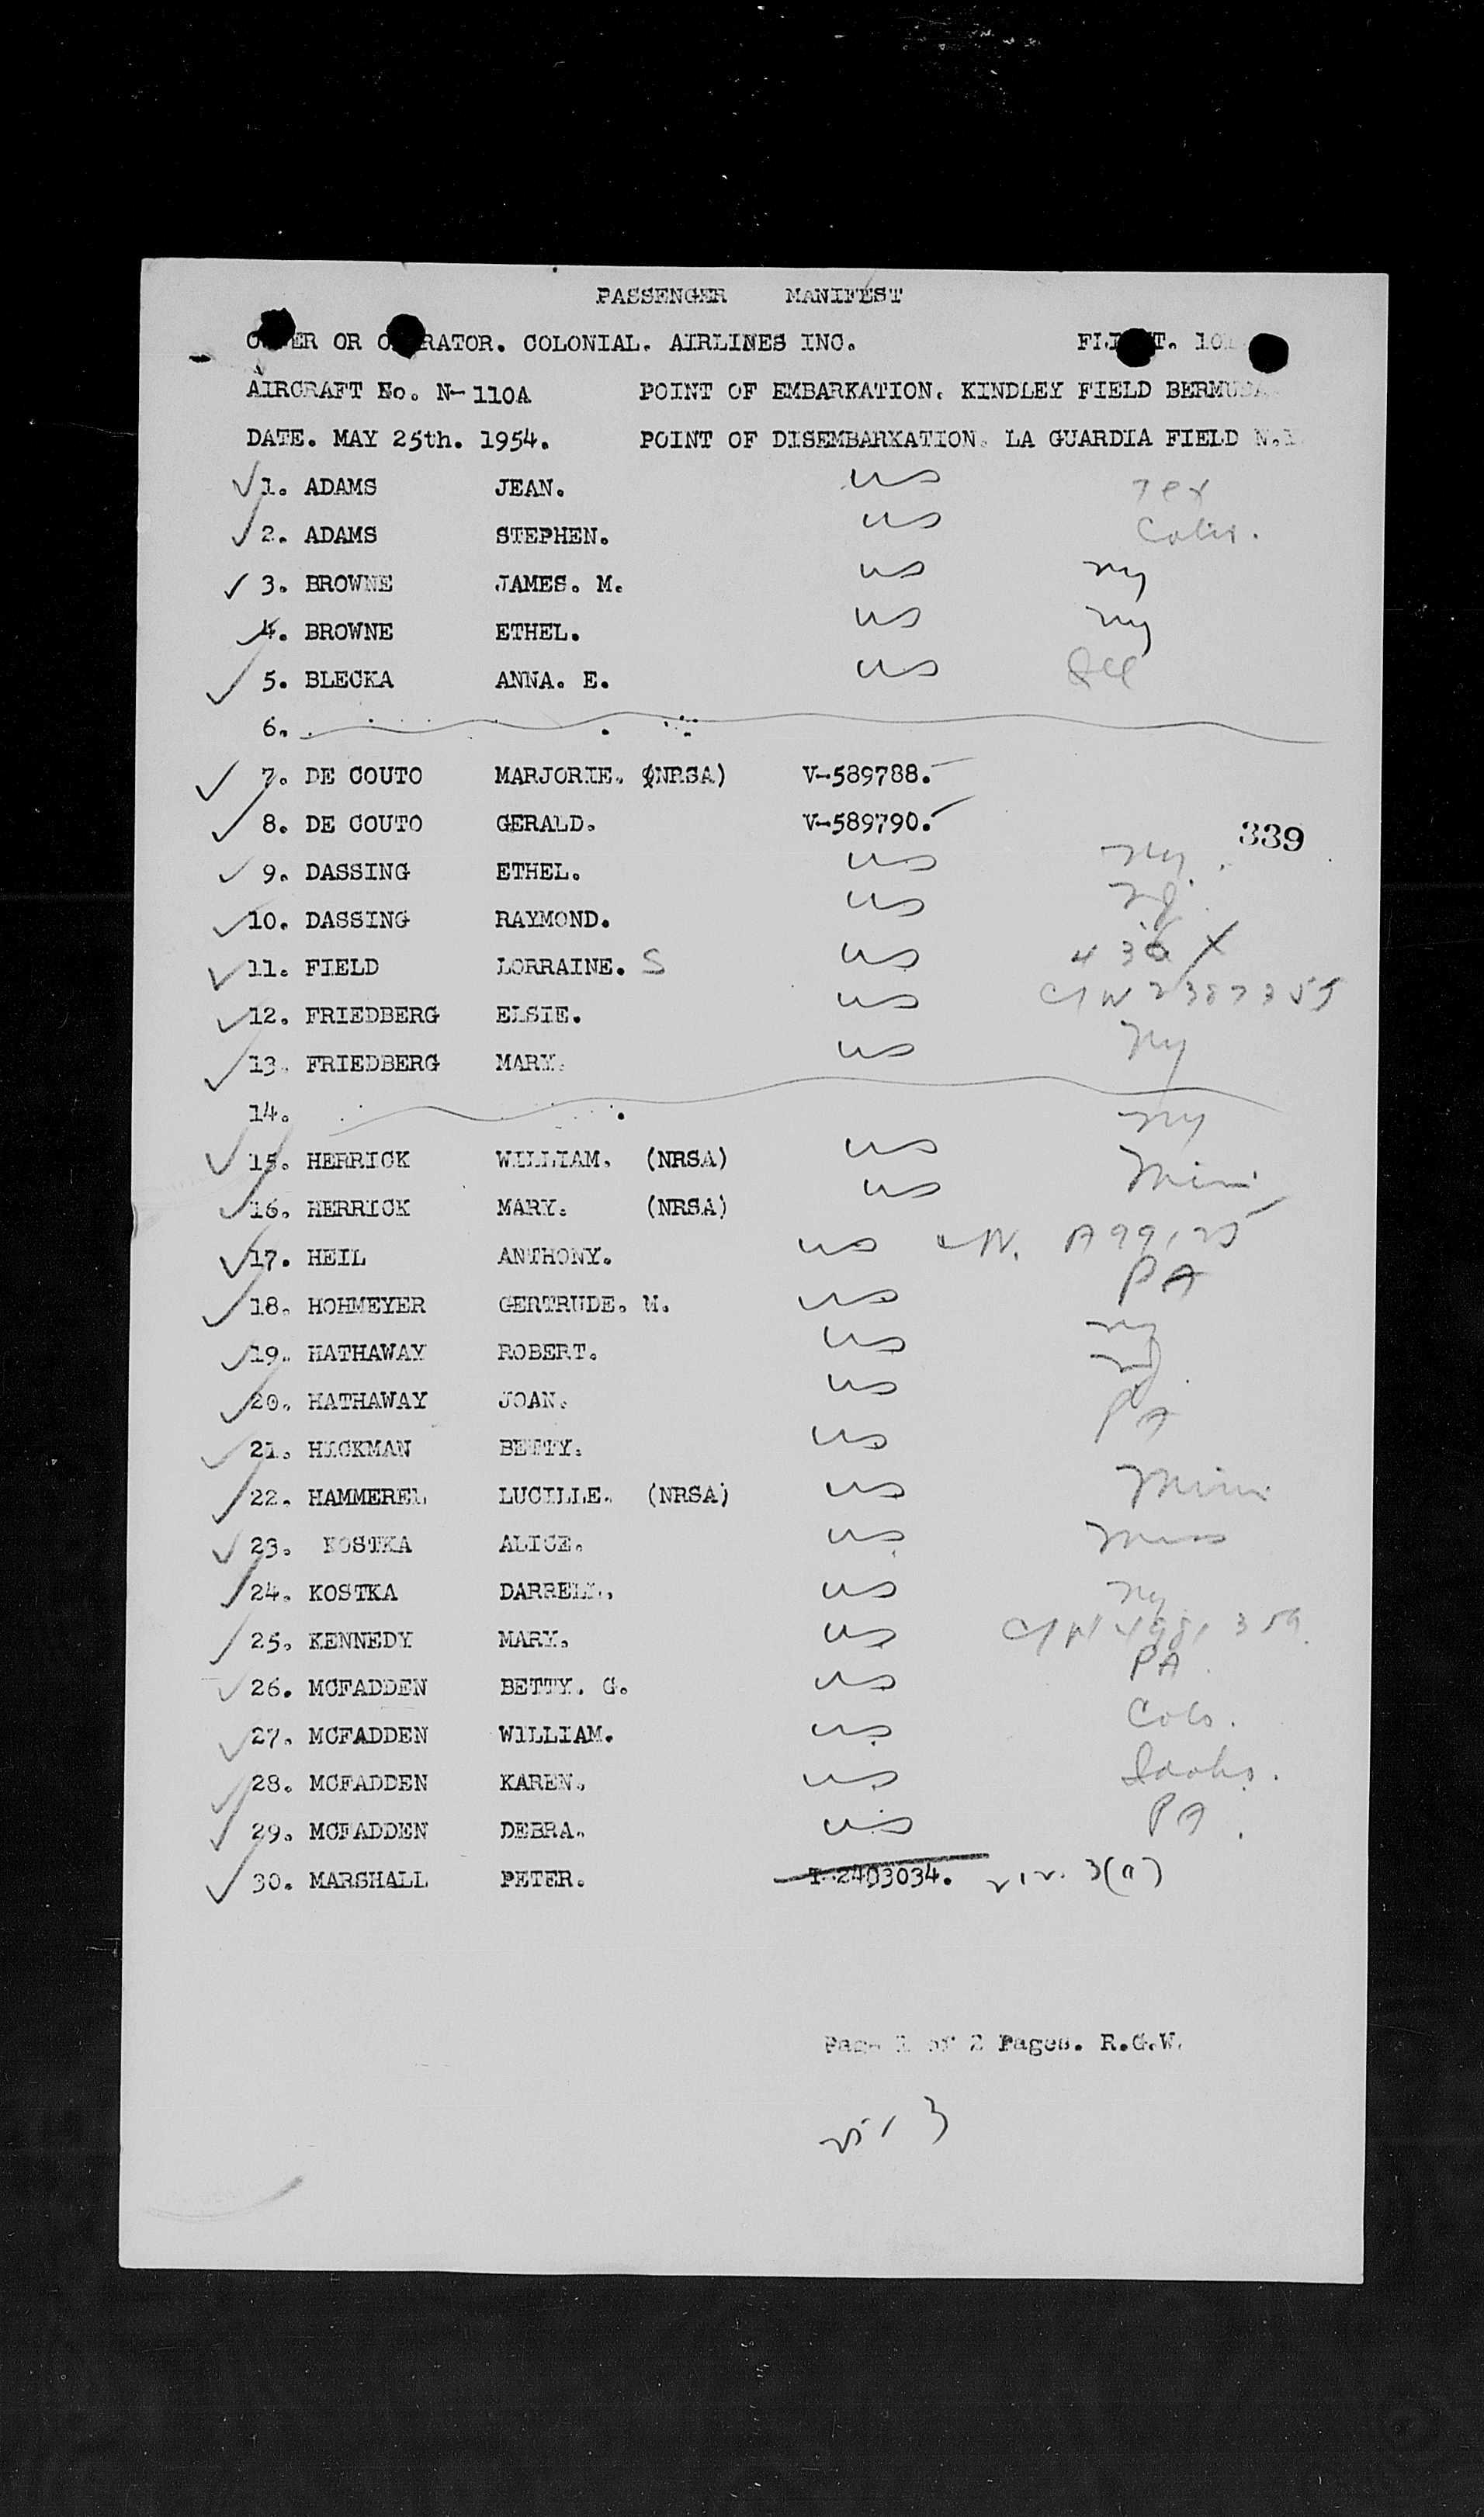 PASSENGER MANIFEST
OR COLONIAL. AIRLINES INC.
AIRCRAFT No. N-110A POINT OF EMBARKATION. KINDLEY FIELD BERMUDA
DATE. MAY 25th. 1954. POINT OF DISEMBARKATION. LA GUARDIA FIELD N.Y
1. ADAMS JEAN. US Tex
2. ADAMS STEPHEN. US
3. BROWNE JAMES. M. US NY
4. BROWNE ETHEL. US NY
5. BLECKA ANNA. E. US Ill
6.
7. DE COUTO MARJORIE. (NRSA) V-589788.
8. DE COUTO GERALD. V-589790.
339
9. DASSING ETHEL. US NY.
10. DASSING RAYMOND. US NJ
11. FIELD LORRAINE. S US
12. FRIEDBERG ELSIE. US
13. FRIEDBERG MARY. US NY
14. NY
15. HERRICK WILLIAM. (NRSA) US Minn
16. HERRICK MARY. (NRSA) US
17. HEIL ANTHONY. US
PA
18. HOHMEYER GERTRUDE. M. US
19. HATHAWAY ROBERT. US NY
20. HATHAWAY JOAN. US NJ
21. HICKMAN BETTY. US PA
22. HAMMEREL LUCILLE. (NRSA) US Minn
23. KOSTKA ALICE. US
24. KOSTKA DARRELL. US NY
25. KENNEDY MARY. US
26. MCFADDEN BETTY. G. US PA.
27. MCFADDEN WILLIAM. US Colo.
28. MCFADDEN KAREN. US Idaho.
29. MCFADDEN DEBRA. US PA.
30. MARSHALL PETER. T-2403034. 3(a)
Page 1 of 2 Pages. R.G.W.